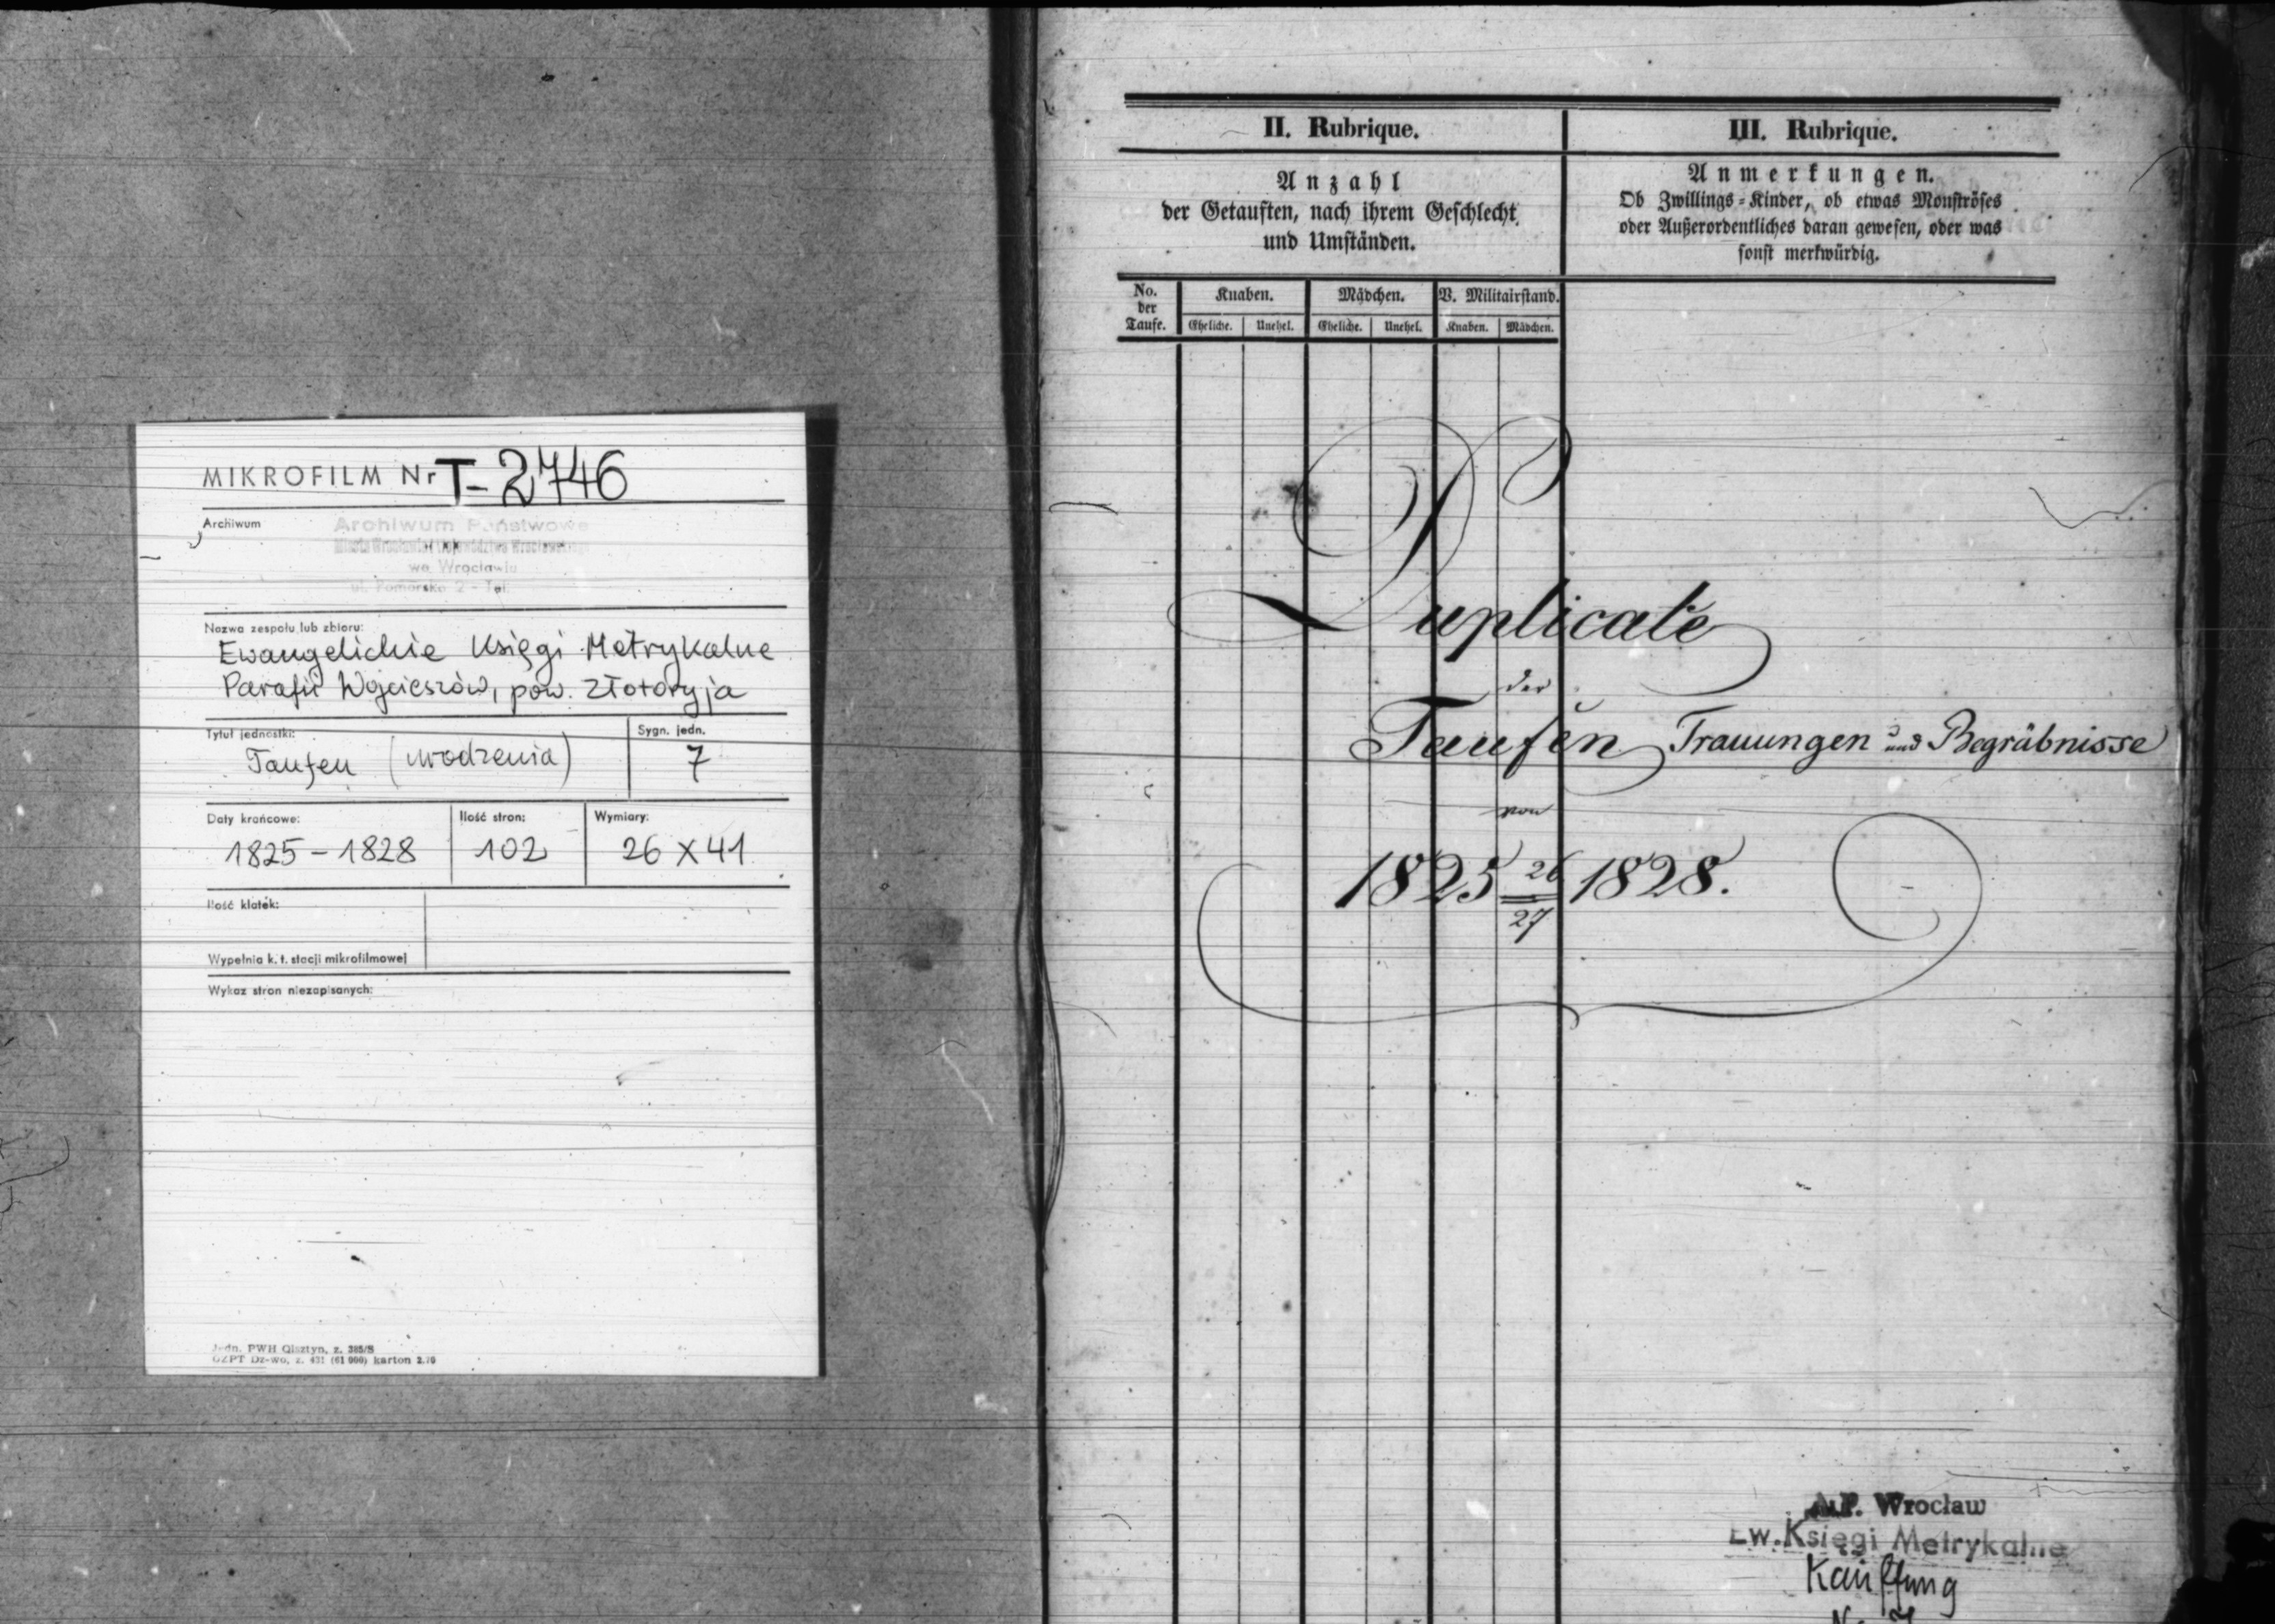 MIKROFILM Nr T-2746
Archiwum
Archiwum Państwowe
we Wrocławiu
ul. Pomorska 2 - Tel.
Nazwa zespołu lub zbioru:
Ewangelickie Księgi Metrykalne
Parafii Wojcieszów, pow. Złotoryja
Tytuł jednostki:
Taufen (urodzenia)
Sygn. jedn.
7
Daty krańcowe:
1825 - 1828
Ilość stron:
102
Wymiary:
26 x 41
Ilość klatek:
Wypełnia k. t. stacji mikrofilmowej
Wykaz stron niezapisanych:
Jedn. PWH Olsztyn, z. 385/S
OZPT Dz-wo, z. 431 (61 000) karton 2.70
II. Rubrique.
Anzahl
der Getauften, nach ihrem Geschlecht
und Umständen.
III. Rubrique.
Anmerkungen.
Ob Zwillings-Kinder, ob etwas Monströses
oder Außerordentliches daran gewesen, oder was
sonst merkwürdig.
No.
der
Taufe.
Knaben.
Mädchen.
V. Militairstand.
Eheliche.
Unehel.
Eheliche.
Unehel.
Knaben.
Mädchen.
Duplicate
der
Taufen Trauungen und Begräbnisse
von
1825 26 1828.
27
A.P. Wrocław
Ew. Księgi Metrykalne
Kauffung